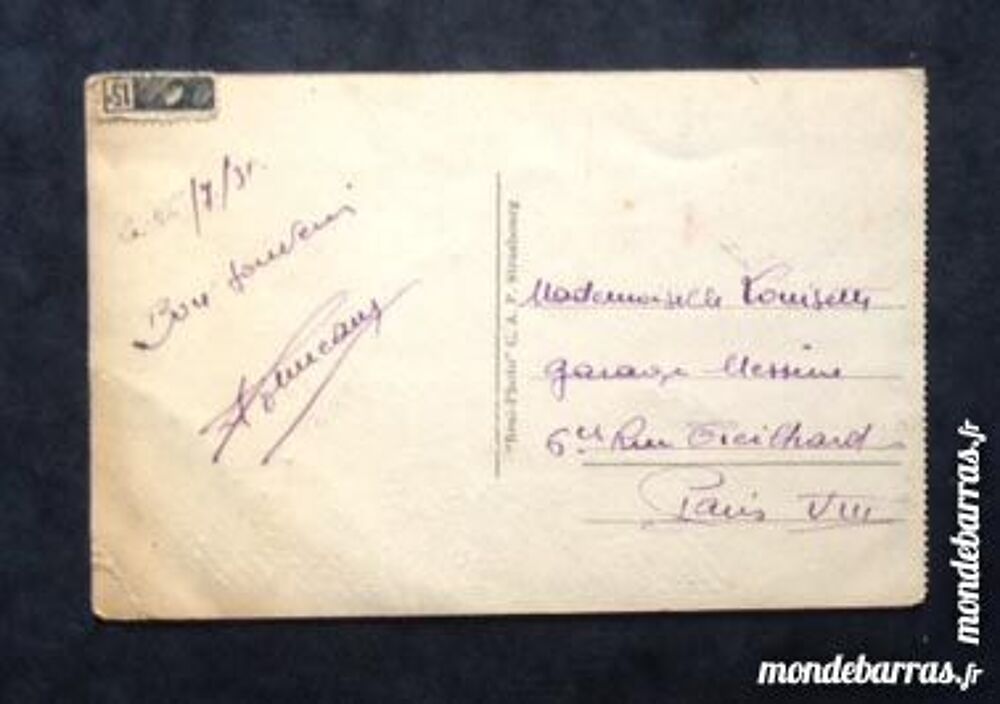 15c
/7/31.
Bon souvenir
"Réal-Photo" C. A. P. Strasbourg
Mademoiselle Louisette
garage Messine
6 Rue Treilhard
Paris VIII
mondebarras.fr
mondebarras.fr